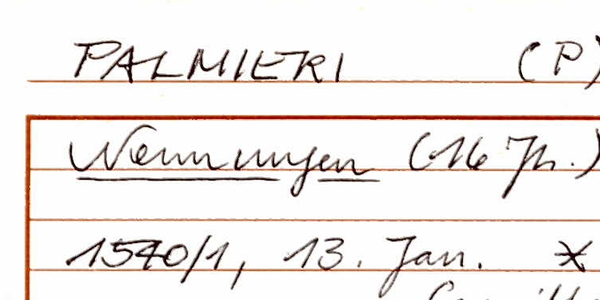 PALMIERI (P)
Nennungen (16 Jh.)
1540/1, 13. Jan.